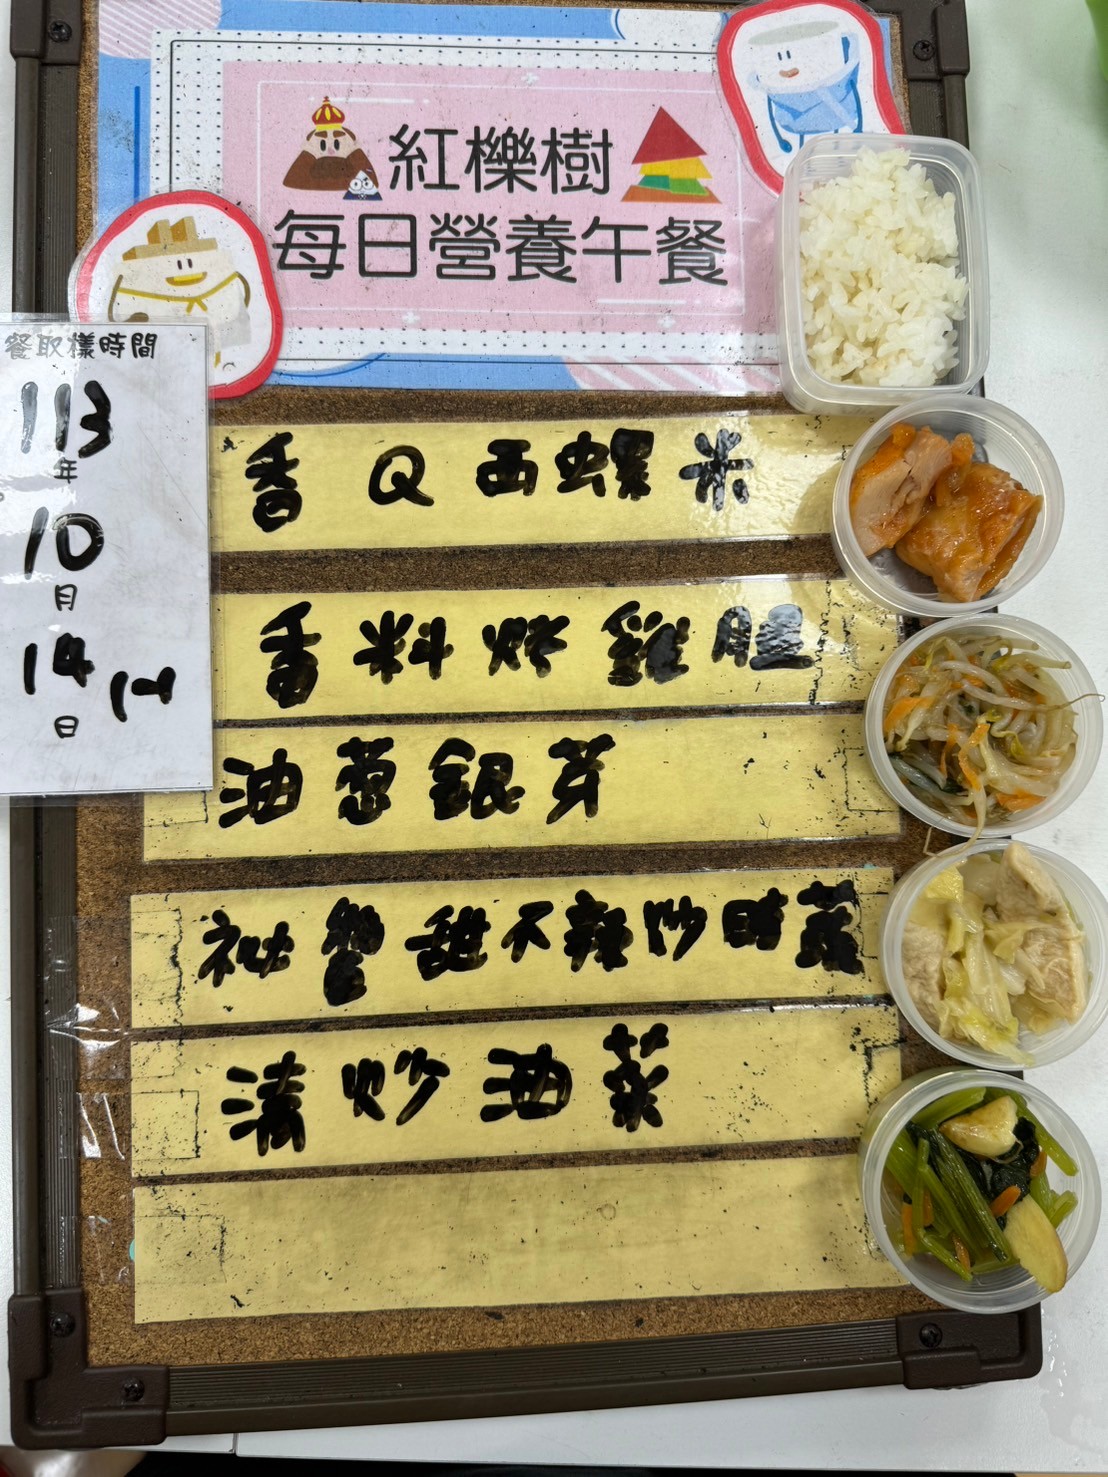 紅櫟樹
每日營養午餐
餐取樣時間
113
年
10
月
14
日
香Q西螺米
香料炒雞腿
油蔥銀芽
祕醬甜不辣炒時蔬
清炒油菜